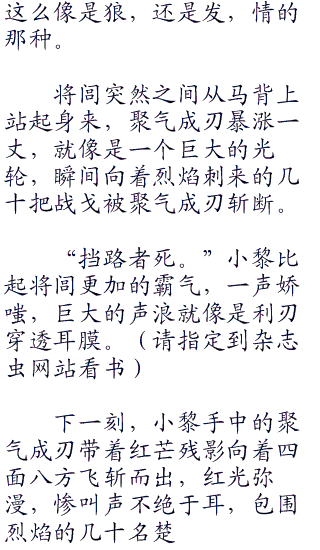 这么像是狼，还是发，情的
那种。
将闾突然之间从马背上
站起身来，聚气成刃暴涨一
丈，就像是一个巨大的光
轮，瞬间向着烈焰刺来的几
十把战戈被聚气成刃斩断。
“挡路者死。”小黎比
起将闾更加的霸气，一声娇
嗤，巨大的声浪就像是利刃
穿透耳膜。（请指定到杂志
虫网站看书）
下一刻，小黎手中的聚
气成刃带着红芒残影向着四
面八方飞斩而出，红光弥
漫，惨叫声不绝于耳，包围
烈焰的几十名楚